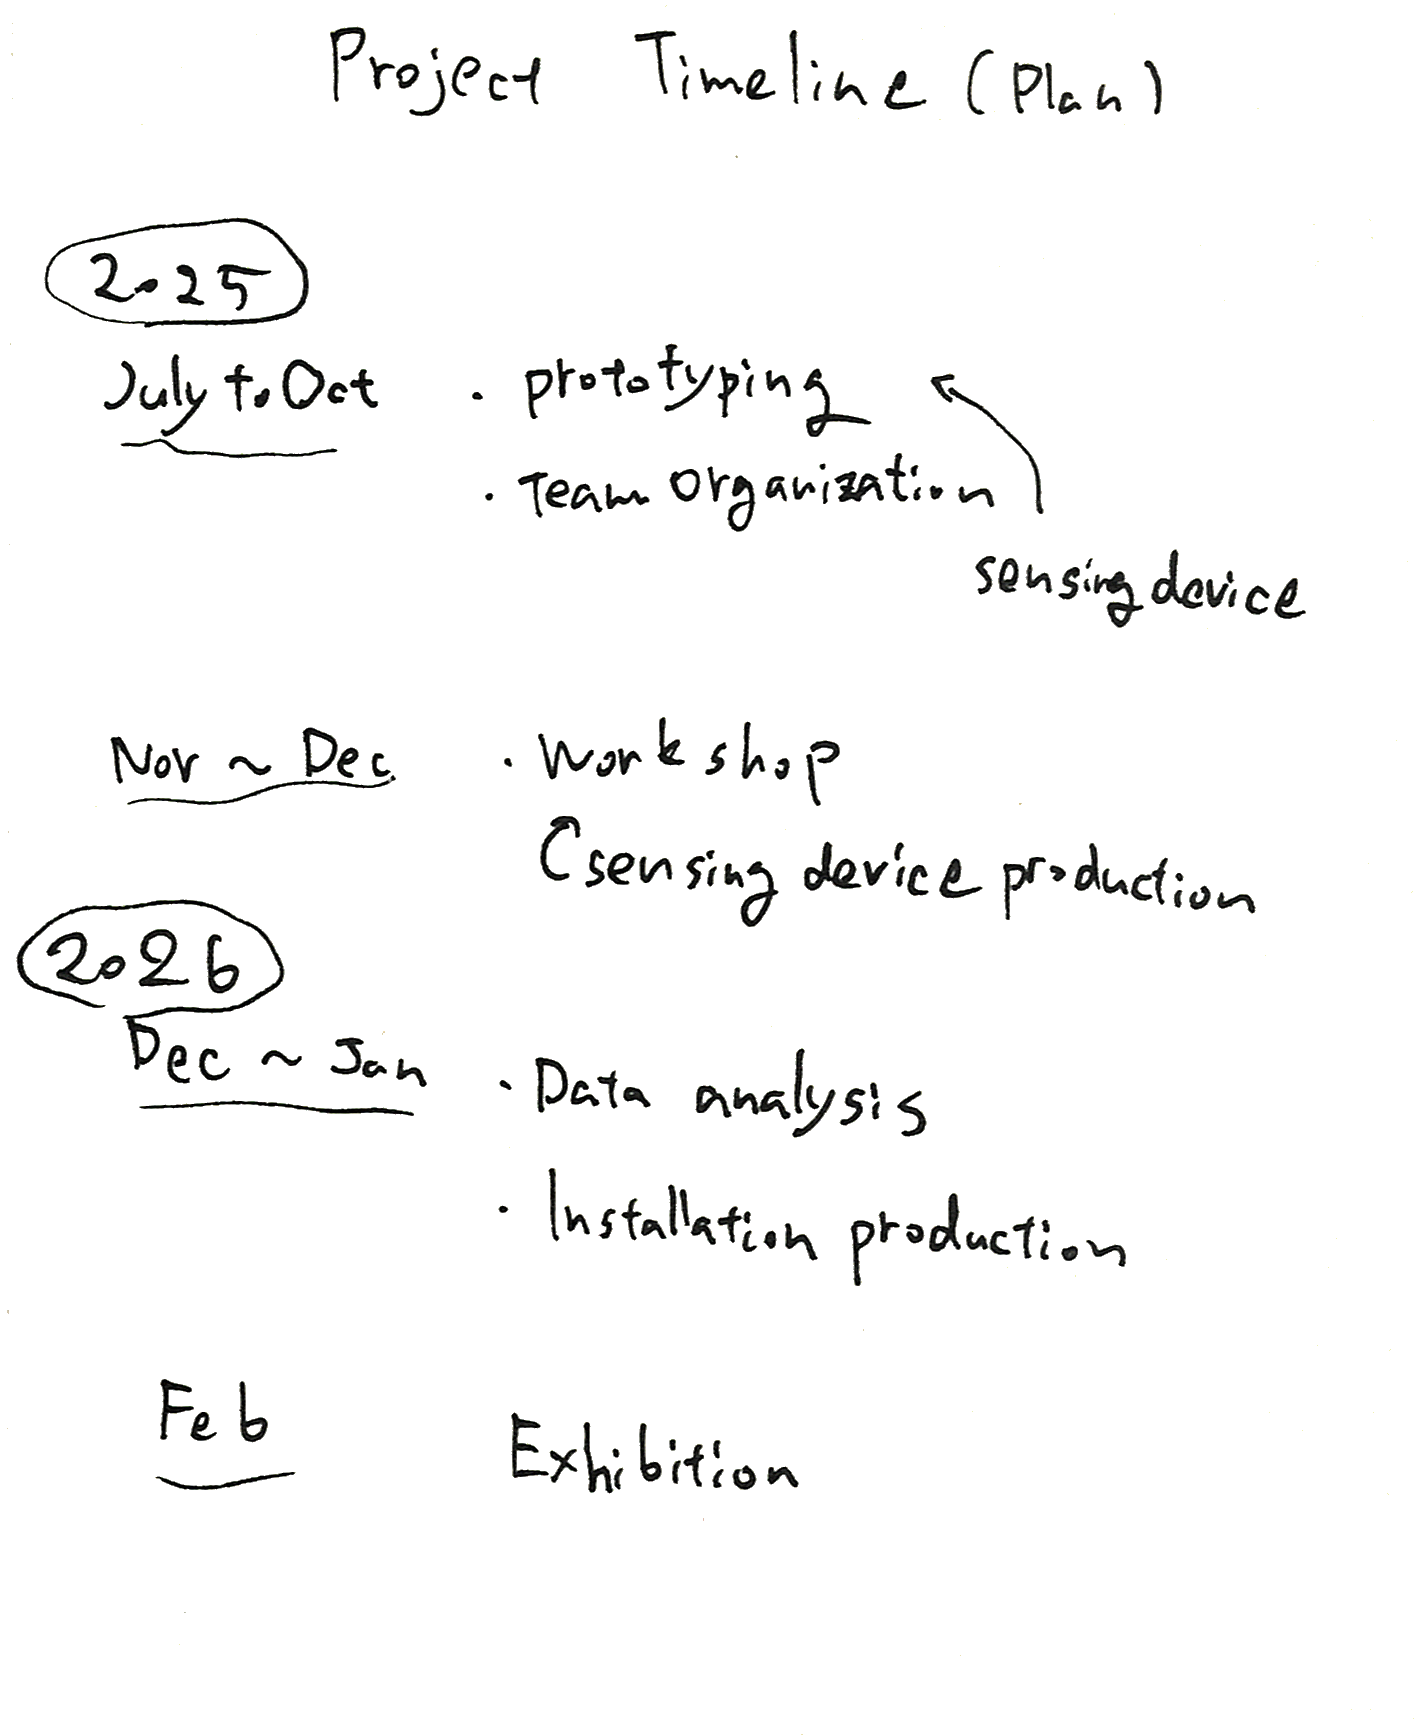 Project Timeline (Plan)
2025
July to Oct · prototyping
· Team organization
sensing device
Nov ~ Dec · Workshop
sensing device production
2026
Dec ~ Jan · Data analysis
· Installation production
Feb Exhibition